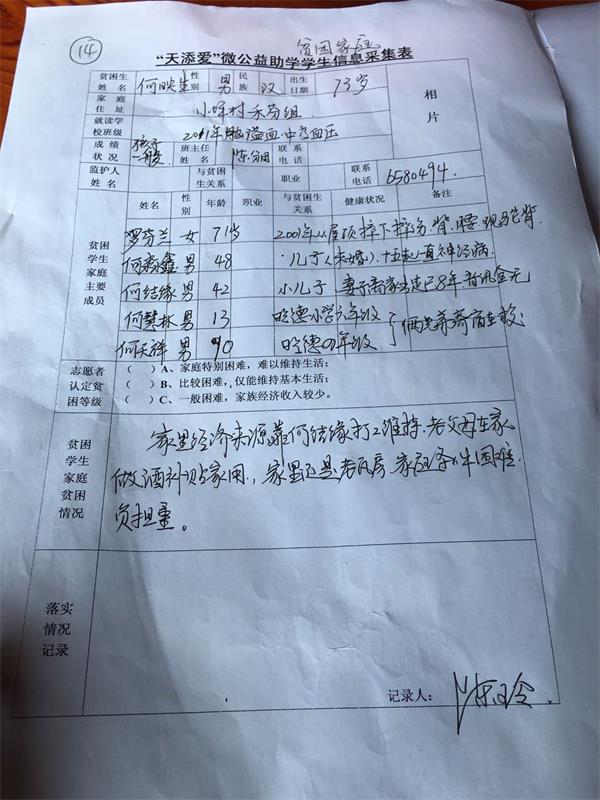 14
贫困家庭
“天添爱”微公益助学学生信息采集表
贫困生姓名 何映生 性别 男 民族 汉 出生日期 73岁 相片
家庭住址 小坪村禾芬组
就读学校班级 2001年脑溢血中高血压
成绩状况 一般 班主任姓名 联系电话
监护人姓名 与贫困生关系 职业 联系电话 6580494.
贫困学生家庭主要成员 姓名 性别 年龄 职业 与贫困生关系 健康状况 备注
罗芬兰 女 71岁 2001年从屋顶摔下摔伤
何森鑫 男 48 儿子(未婚)、 神经病.
何结缘 男 42 小儿子 妻子离家出走已8年.
何赞林 男 13 哈德小学六年级
何天祥 男 10 哈德四年级 俩兄弟寄宿在校
志愿者认定贫困等级 ( )A、家庭特别困难，难以维持生活；
( )B、比较困难，仅能维持基本生活；
( )C、一般困难，家族经济收入较少。
贫困学生家庭贫困情况 家里经济来源靠何结缘打工维持.老父母在家
做酒补贴家用.，家里还是老瓦房.家庭条件困难.
负担重。
落实情况记录
记录人：